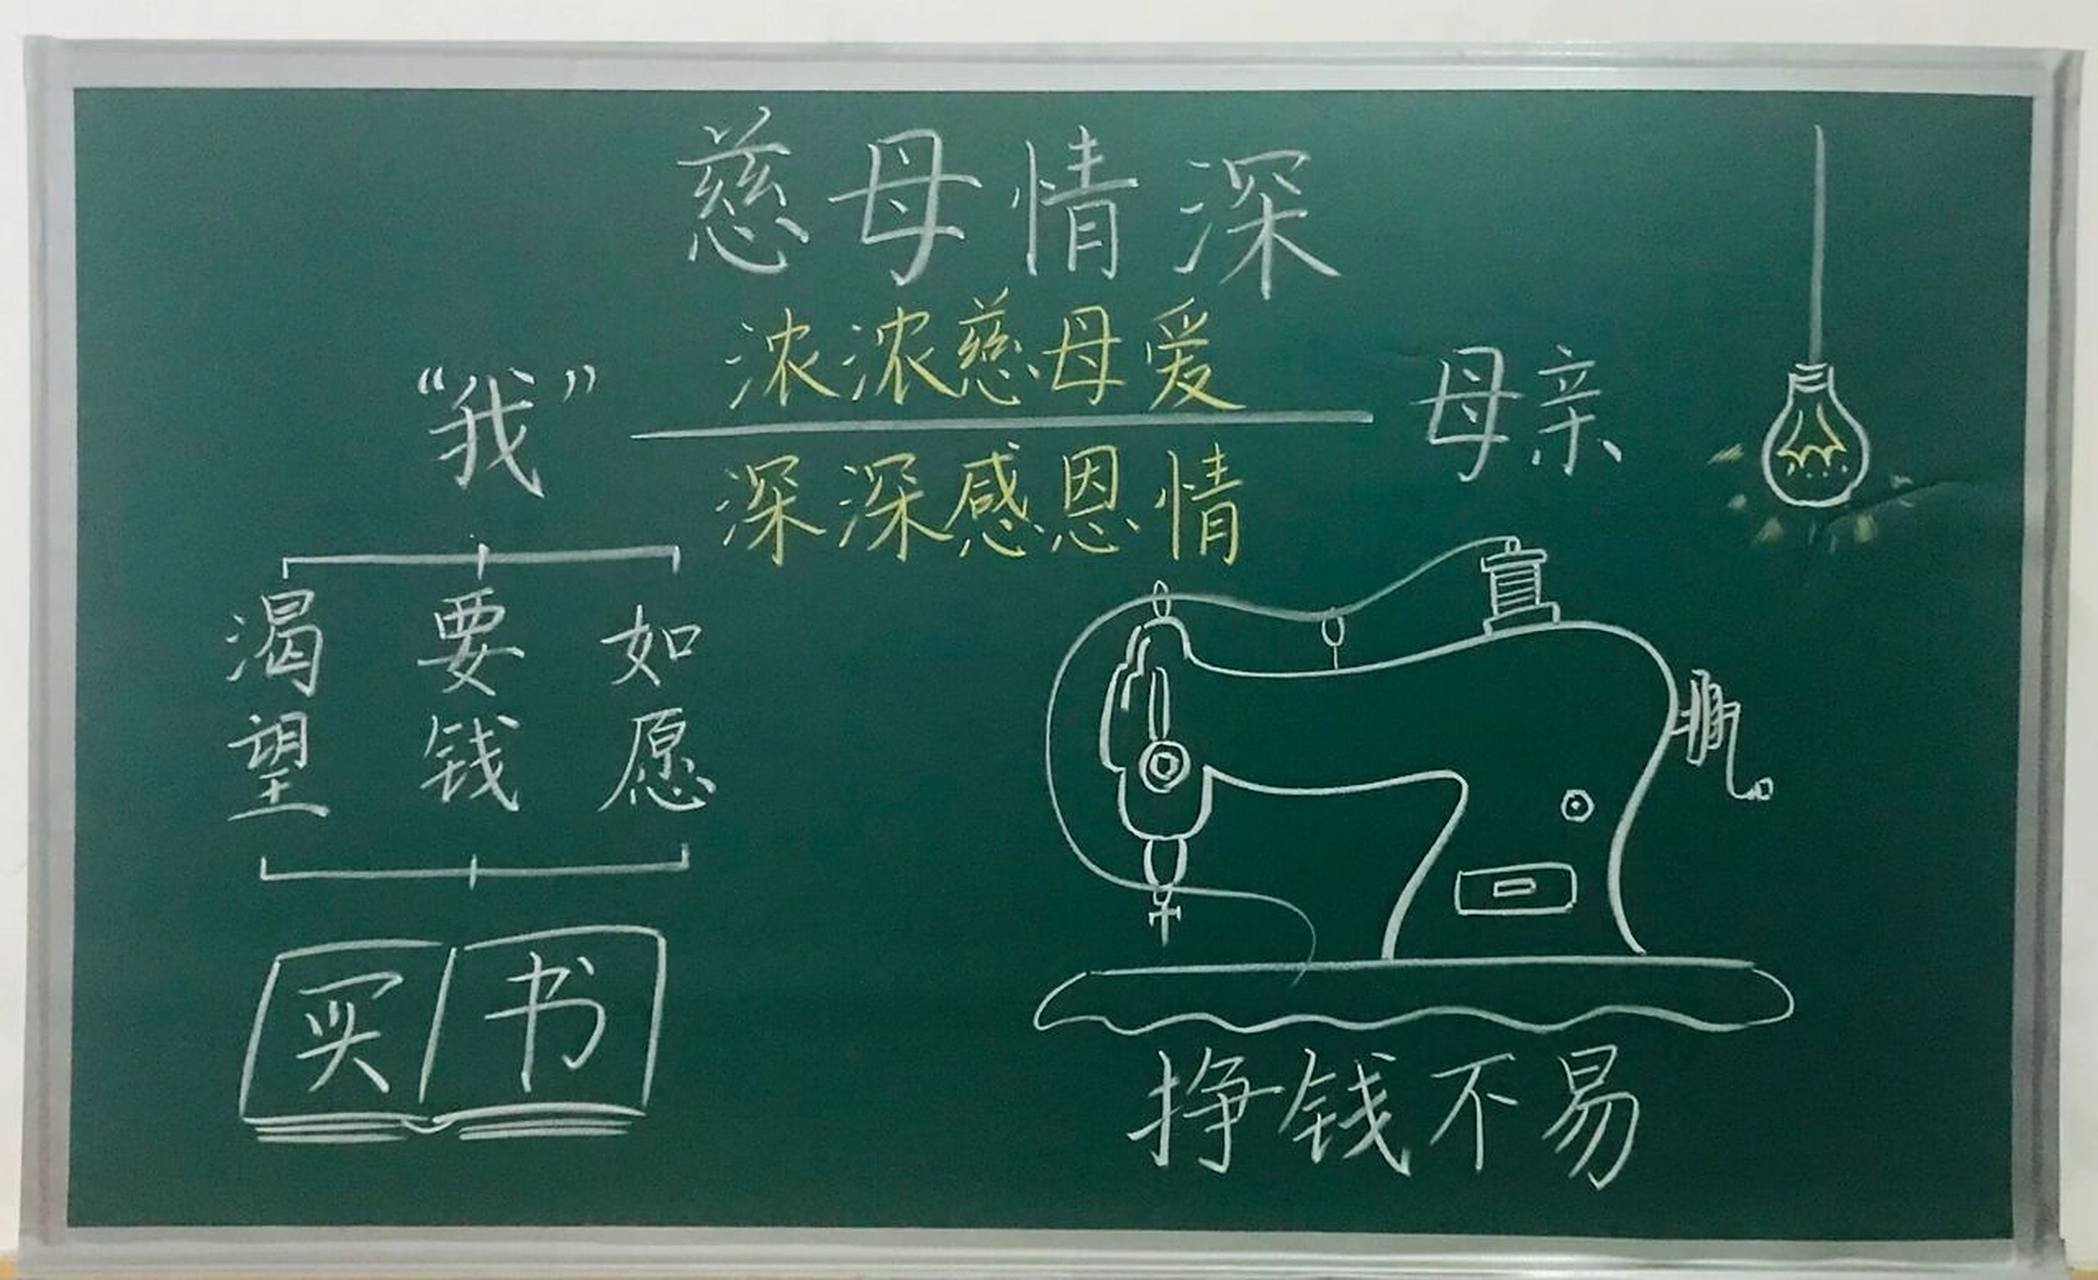 慈母情深
浓浓慈母爱
“我”
母亲
深深感恩情
渴望
要钱
如愿
买书
挣钱不易